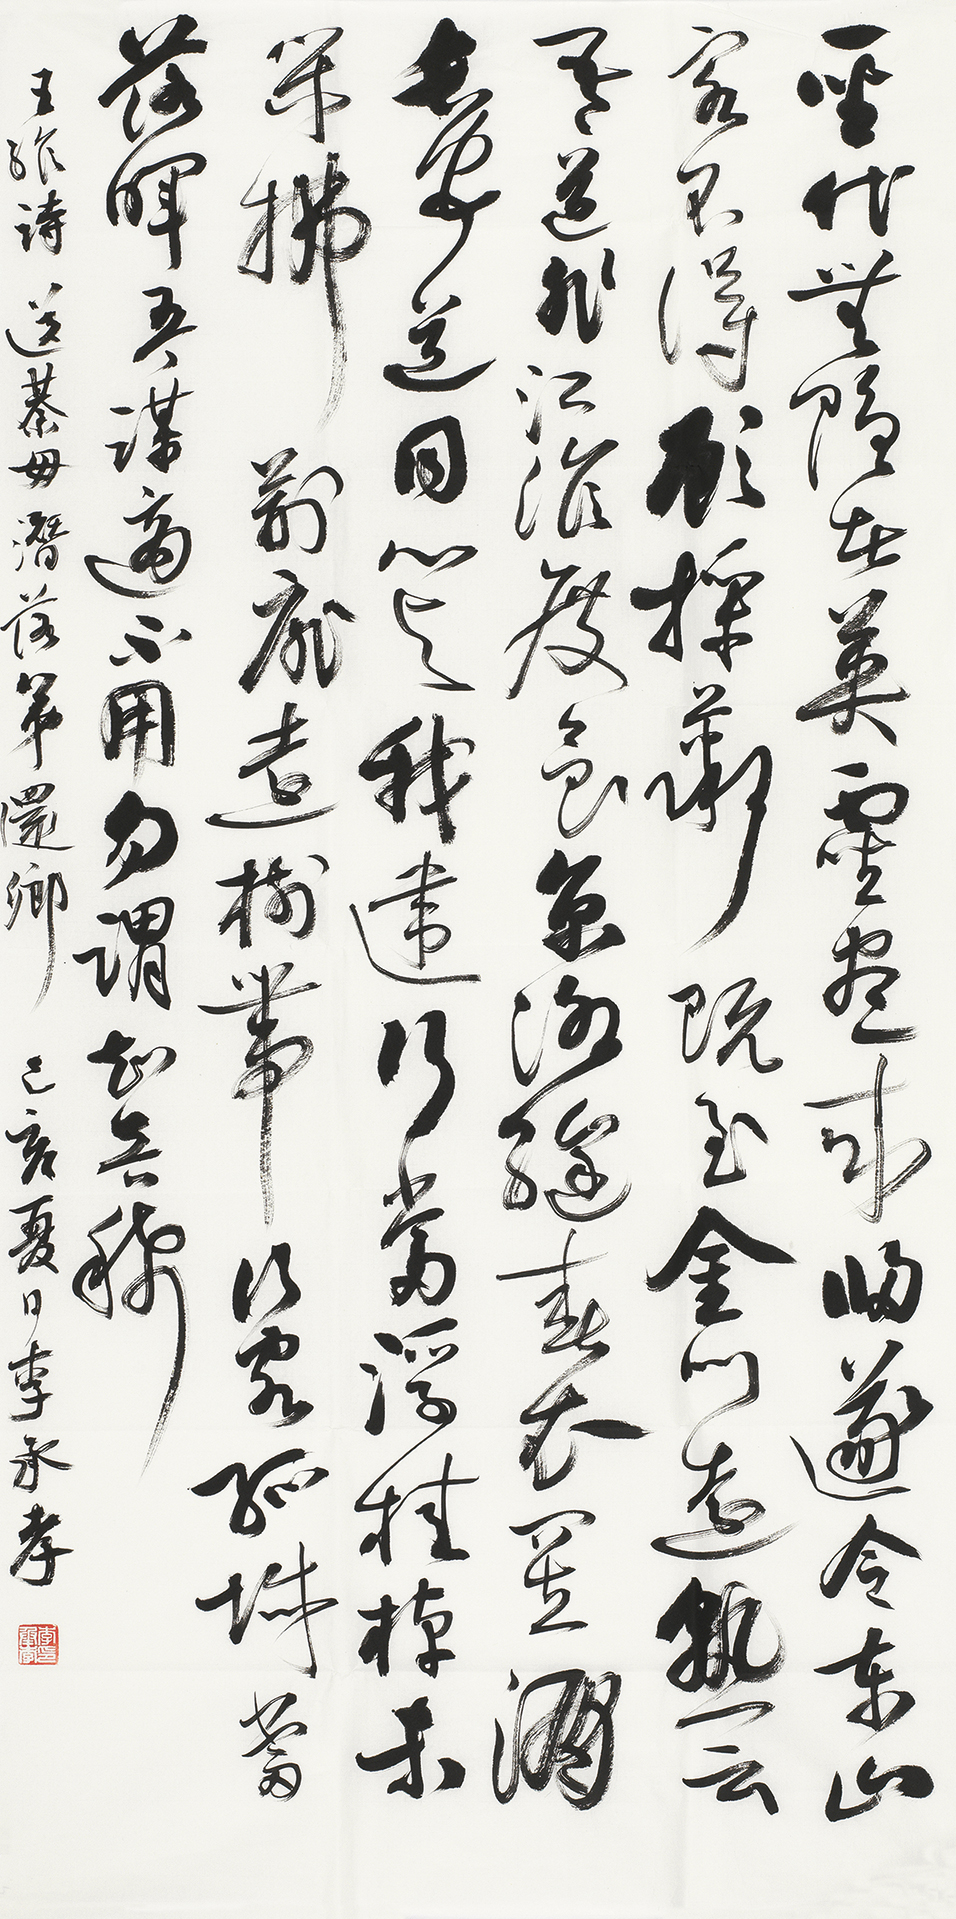 聖代無隱者英靈盡來歸遂令東山
客不得顧採薇既至金門遠孰云
吾道非江淮度食京洛縫春衣置酒
長安道同心與我違行當浮桂棹未
幾拂荊扉遠樹帶行客孤城當
落暉吾謀適不用勿謂知音稀
王維詩送綦毋潛落第還鄉 己亥夏日李承孝